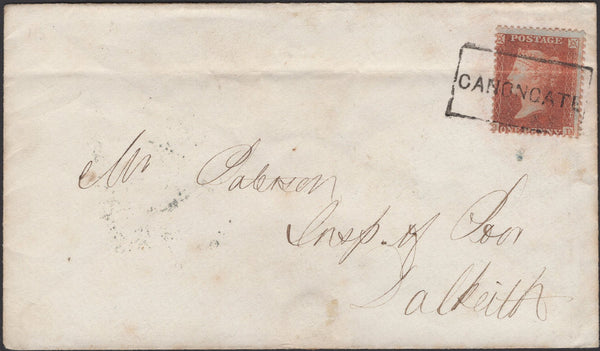 POSTAGE
CANONGATE
ONE PENNY
Mr Paterson
Insp. of Poor
Dalkeith